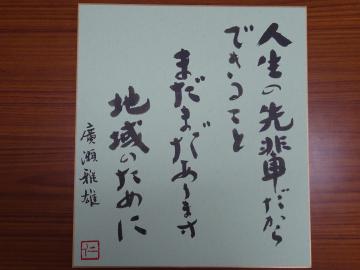 人生の先輩だから
できること
まだまだあります
地域のために
廣瀬雅雄
仁